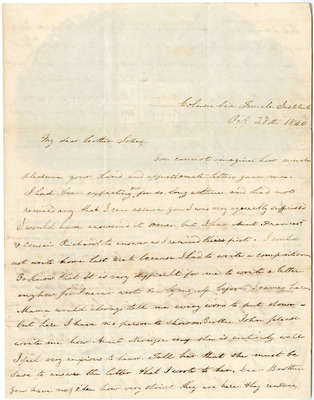 Columbia Female Institute
Oct. 28th 1840
My dear Brother John,
You cannot imagine how much
pleasure your kind and affectionate letter gave me.
I had been expecting for so long a time and had not
received any that I can assure you I was very agreeably suprised
I would have answered it sooner but I had Aunt Frances'
& Cousin Richard's to answer as I received theirs first. I could
not write home last week because I had to write a composition
You know that it is very difficult for me to write a letter
any how for I never wrote one before leaving home
Mama would always tell me every word to put down
but here I have no person to show Brother John please
write me how Aunt is she entirely well
I feel very anxious to hear. Tell her that she must be
sure to answer the letter that I wrote to her, Dear Brother
you have no idea how very strict they are here they